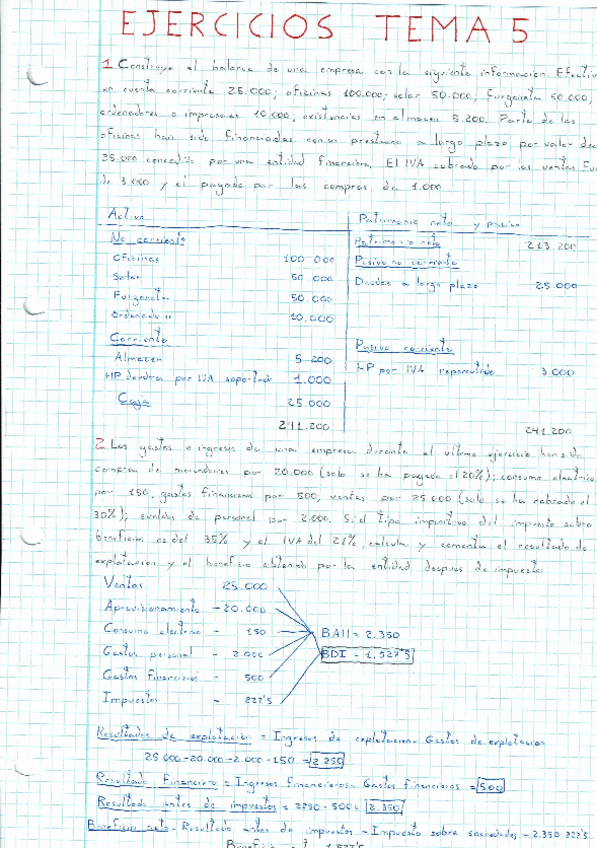 EJERCICIOS TEMA 5
1. Construye el balance de una empresa con la siguiente información. Efectivo
en cuenta corriente 25.000; oficinas 100.000; solar 50.000; furgoneta 50.000;
ordenadores e impresoras 10.000; existencias en almacen 5.200. Parte de las
oficinas han sido financiadas con un prestamo a largo plazo por valor de
25.000 concedido por una entidad financiera. El IVA cobrado por las ventas fue
de 3.000 y el pagado por las compras de 1.000
Activo Patrimonio neto y pasivo
No corriente Patrimonio neto 213.200
Oficinas 100 000 Pasivo no corriente
Solar 50 000 Deudas a largo plazo 25.000
Furgoneta 50 000
Ordenadores 10.000
Corriente Pasivo corriente
Almacen 5 200 HP por IVA repercutido 3.000
HP deudora por IVA soportado 1.000
Caja 25 000
241.200 241.200
2. Los gastos e ingresos de una empresa durante el ultimo ejercicio han sido
compra de mercaderias por 20.000 (solo se ha pagado el 20%); consumo electrico
por 150, gastos financieros por 500, ventas por 25 000 (solo se ha cobrado el
30%); sueldos de personal por 2.000. Si el tipo impositivo del impuesto sobre
beneficio es del 35% y el IVA del 21%, calcula y comenta el resultado de
explotación y el beneficio obtenido por la entidad despues de impuestos
Ventas 25.000
Aprovisionamiento -20.000
Consumo electrico - 150 BAII = 2.350
Gastos personal - 2.000 BDI = 1.527'5
Gastos financieros - 500
Impuestos - 822'5
Resultados de explotación = Ingresos de explotacion - Gastos de explotacion
25 000 - 20.000 - 2.000 - 150 = 2 850
Resultado Financiero = Ingresos financieros - Gastos financieros = 500
Resultado antes de impuestos = 2850 - 500 = 2.350
Beneficio neto = Resultado antes de impuestos - Impuesto sobre sociedades = 2.350 - 822'5
1.527'5